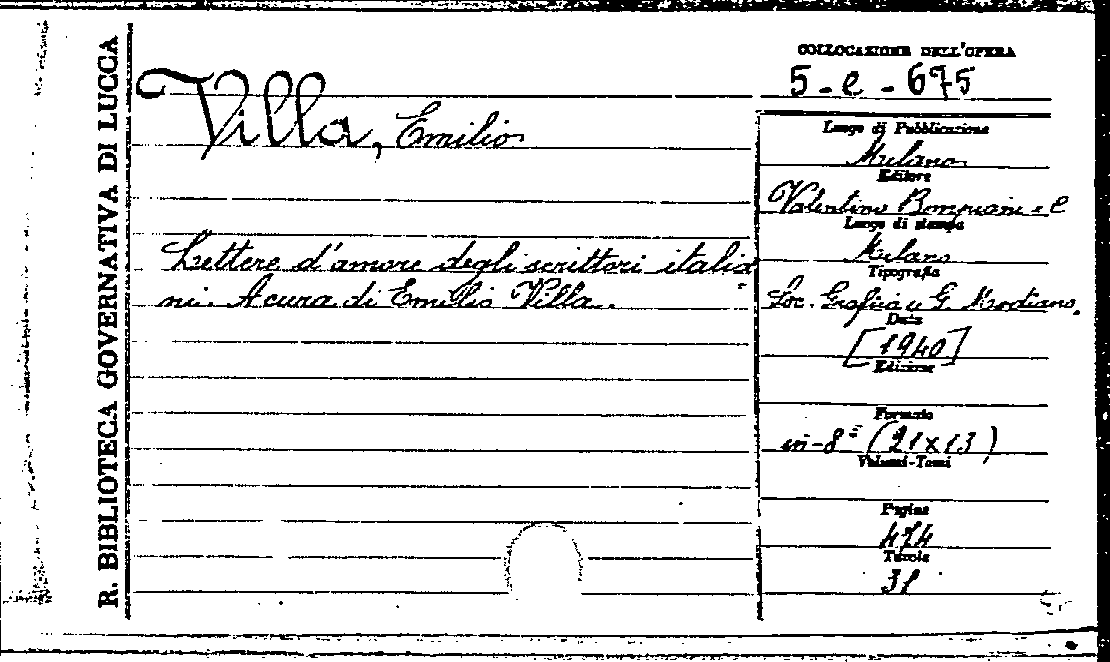 R. BIBLIOTECA GOVERNATIVA DI LUCCA
COLLOCAZIONE DELL'OPERA
5-e-675
Villa, Emilio
Lettere d'amore degli scrittori italia
ni. A cura di Emilio Villa.
Luogo di Pubblicazione
Milano
Editore
Valentino Bompiani e C
Luogo di stampa
Milano
Tipografia
Soc. Grafica G. Modiano.
Data
[1940]
Edizione
Formato
in-8º (21x13)
Volumi-Tomi
Pagine
474
Tavole
31